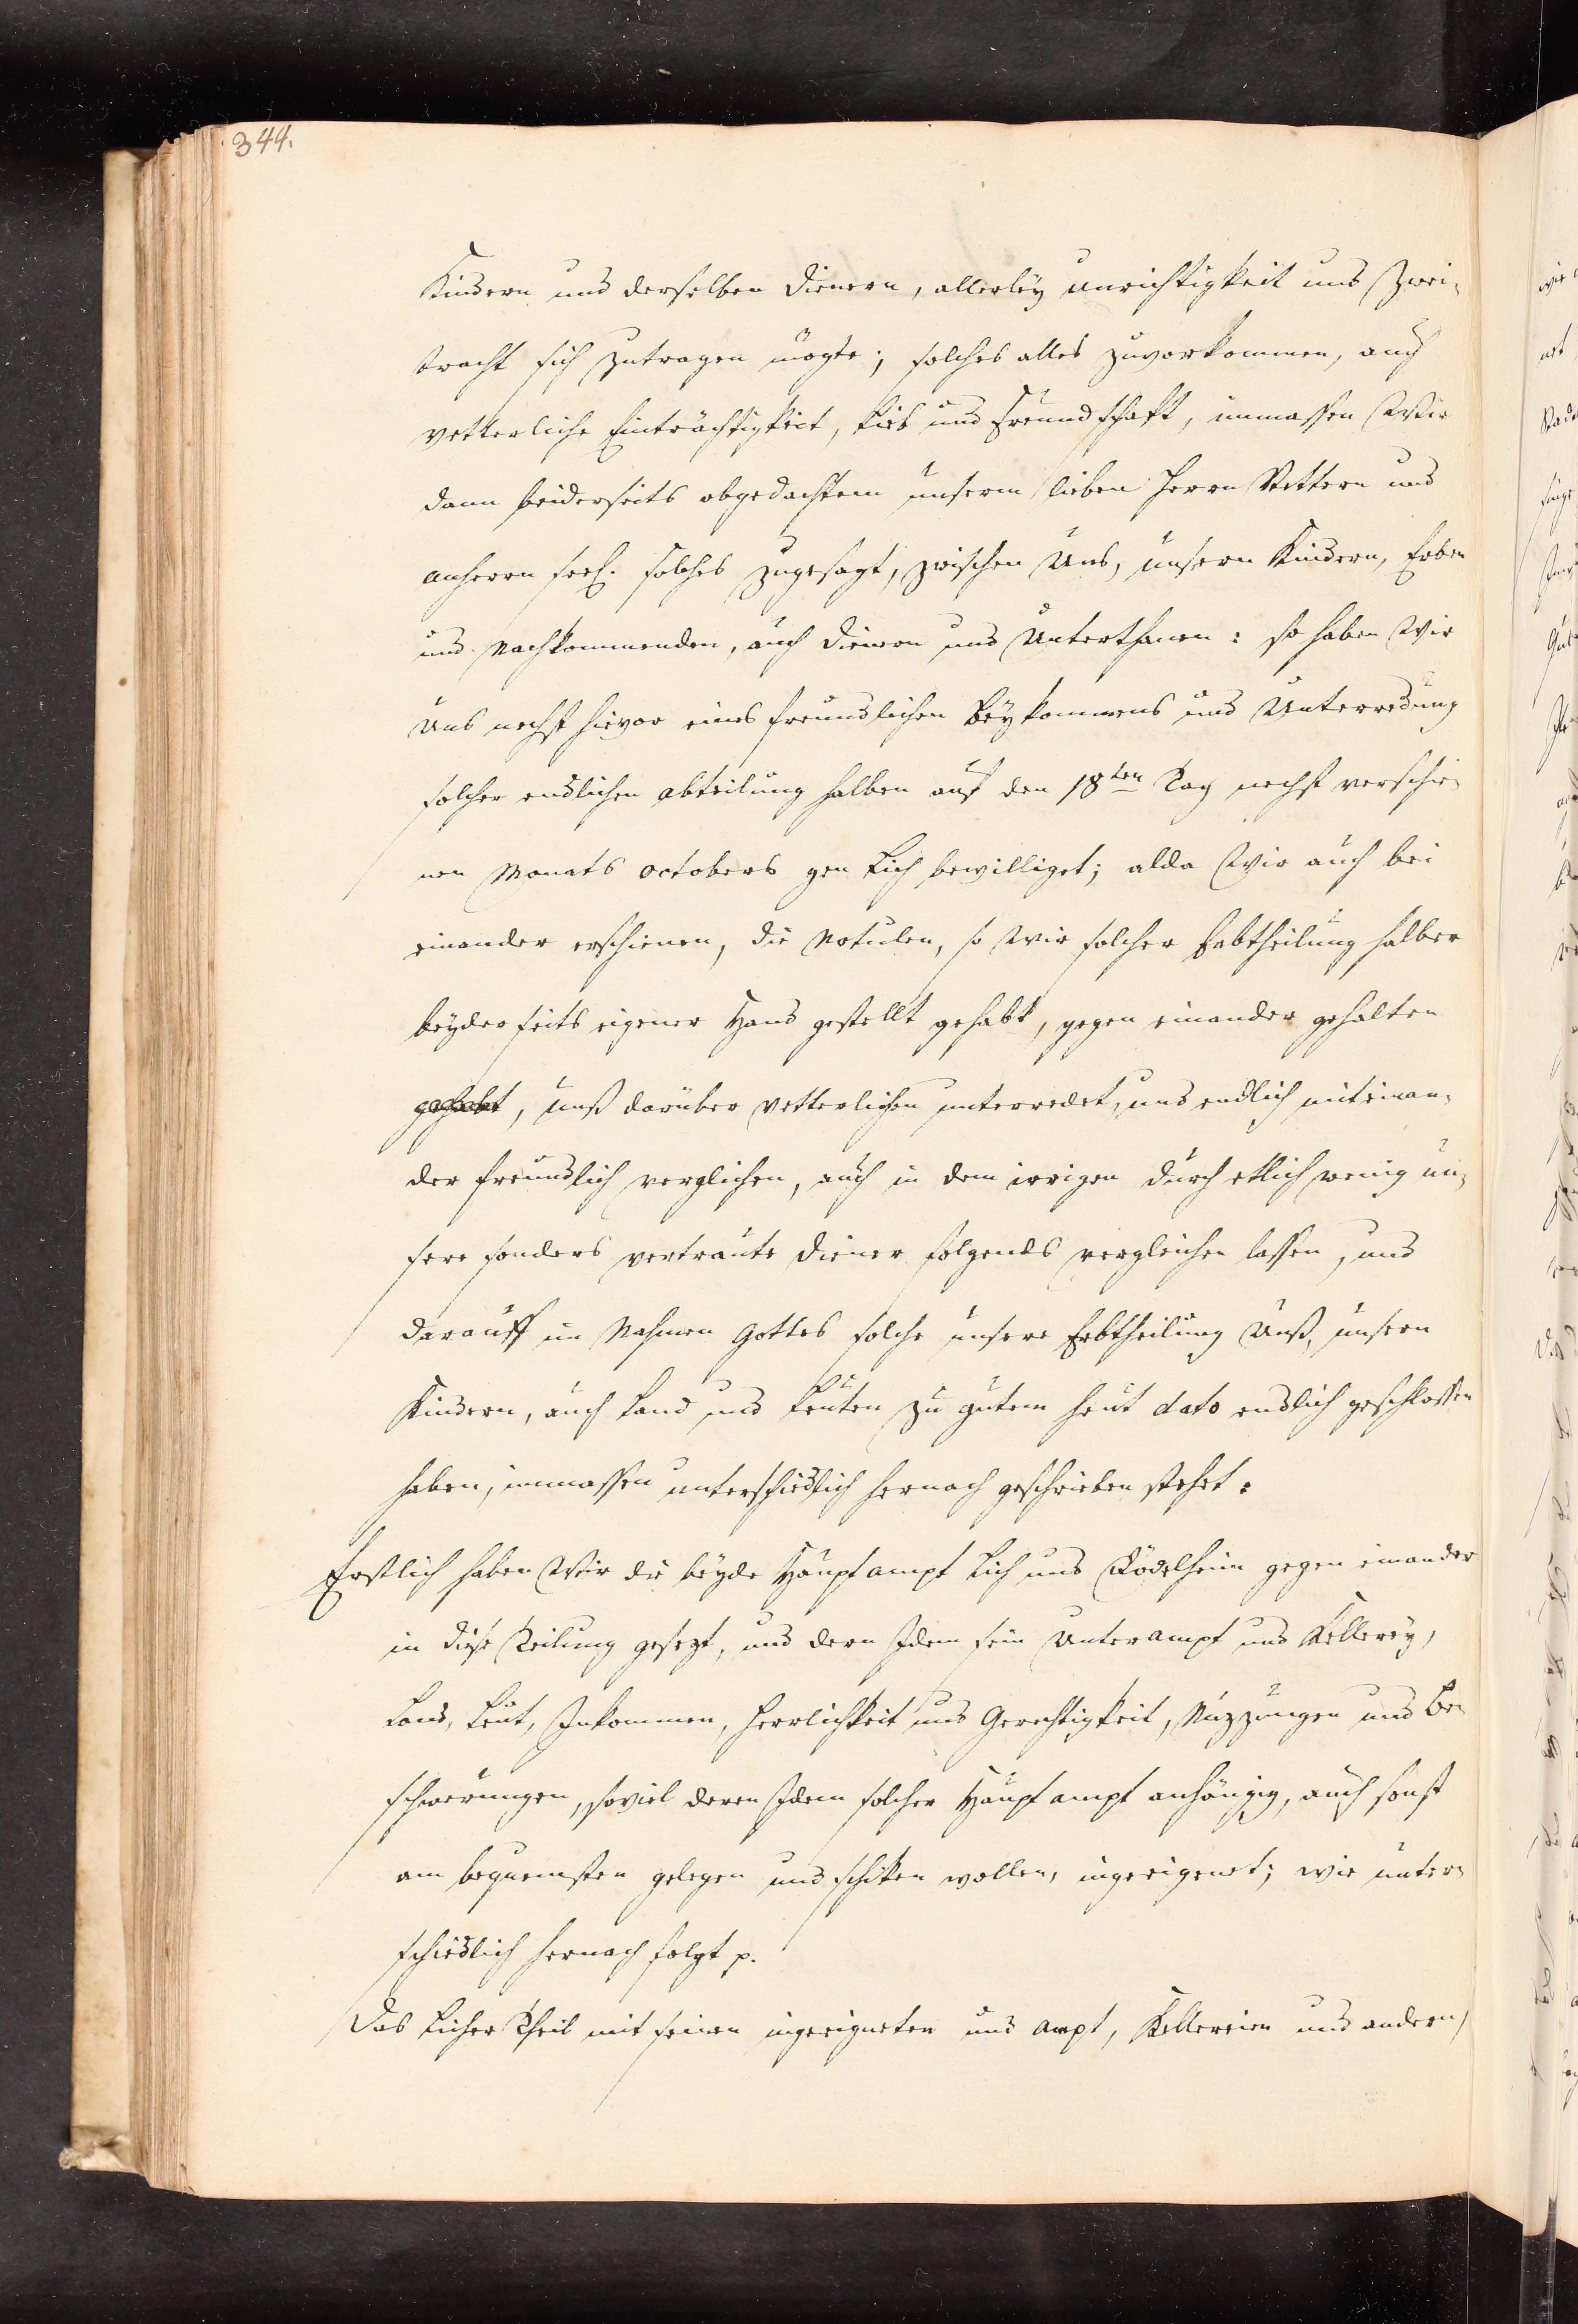 344.
Kindern und derselben Dienern, allerley unrichtigkeit und Zwei-
tracht sich zutragen mögte; solches alles zuvorkommen, auch
vetterliche Einträchtigkeit, Lieb und Freundschafft, inmassen Wir
dann beiderseits obgedachtem unserm lieben Herrn Vettern und
Anherrn seel. solches zugesagt, zwischen Uns, unsern Kindern, Erben
und Nachkommenden, auch Dienern und Unterthanen: so haben Wir
Uns nechst hievor eines freundlichen Beykommens und Unterredung
solcher endlichen Abteilung halben auf den 18ten Tag nechst verschie-
nen Monats Octobers gen Lich bewilliget; alda Wir auch bei
einander erschienen, die Notulen, so Wir solcher Erbtheilung halber
beyderseits eigener Hand gestellt gehabt, gegen einander gehalten
gehabt, unß darüber vetterlichen unterredet, und endlich miteinan-
der freundlich verglichen, auch in dem irrigen durch etlich wenig un-
sere sonders vertraute Diener folgends vergleichen lassen, und
darauff im Nahmen Gottes solche unsere Erbtheilung Unß, unsern
Kindern, auch Land und Leuten zu gutem heut dato endlich geschlossen
haben, inmassen unterschiedlich hernach geschrieben stehet.
Erstlich haben Wir die beyde Hauptampt Lich und Rödelheim gegen einander
in diese Teilung gesezt, und dern Jdem sein Unterampt und Kellerey,
Land, Leut, Inkommen, Herrlichkeit und Gerechtigkeit, Nuzzungen und Be-
schwerungen, soviel deren Jdem solcher Hauptampt anhängig, auch sonst
am bequemsten gelegen und schiken wollen, ingeeigenet; wie unter-
schiedlich hernach folgt p.
Das Licher Theil mit seinen ingeeigneten und Ampt, Kellereien und andern,